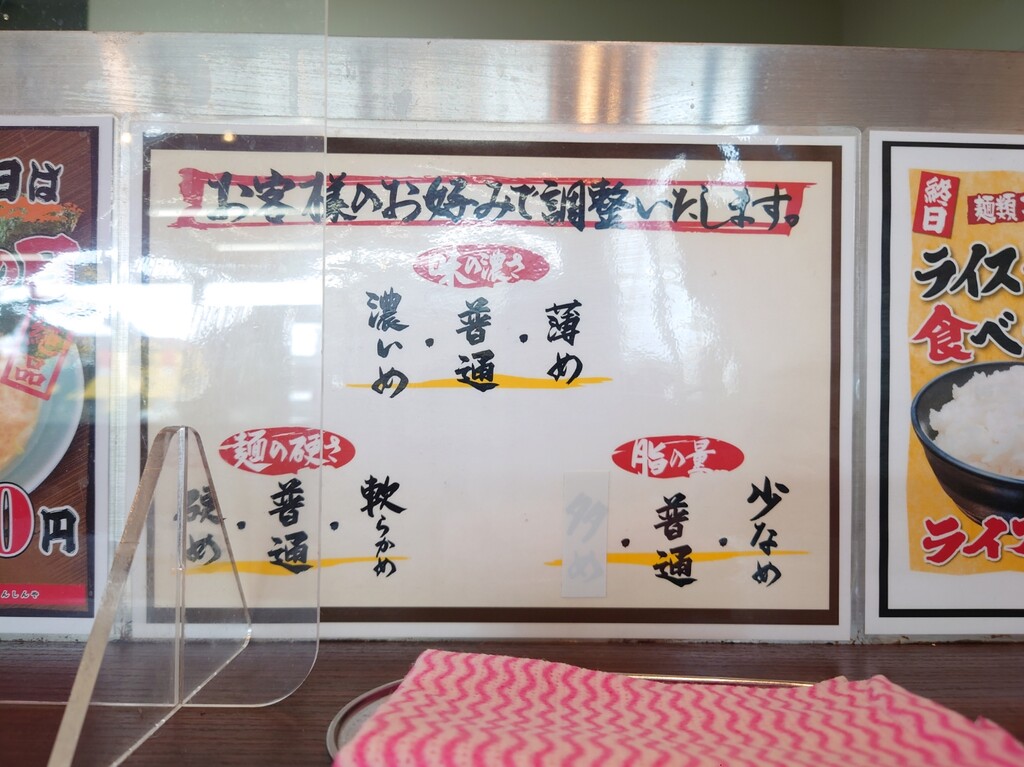 日は
の
品
0円
んしんや
お客様のお好みで調整いたします。
味の濃さ
濃いめ・普通・薄め
麺の硬さ
硬め・普通・軟らかめ
脂の量
多め・普通・少なめ
終日
麺類
ライス
食べ
ライス